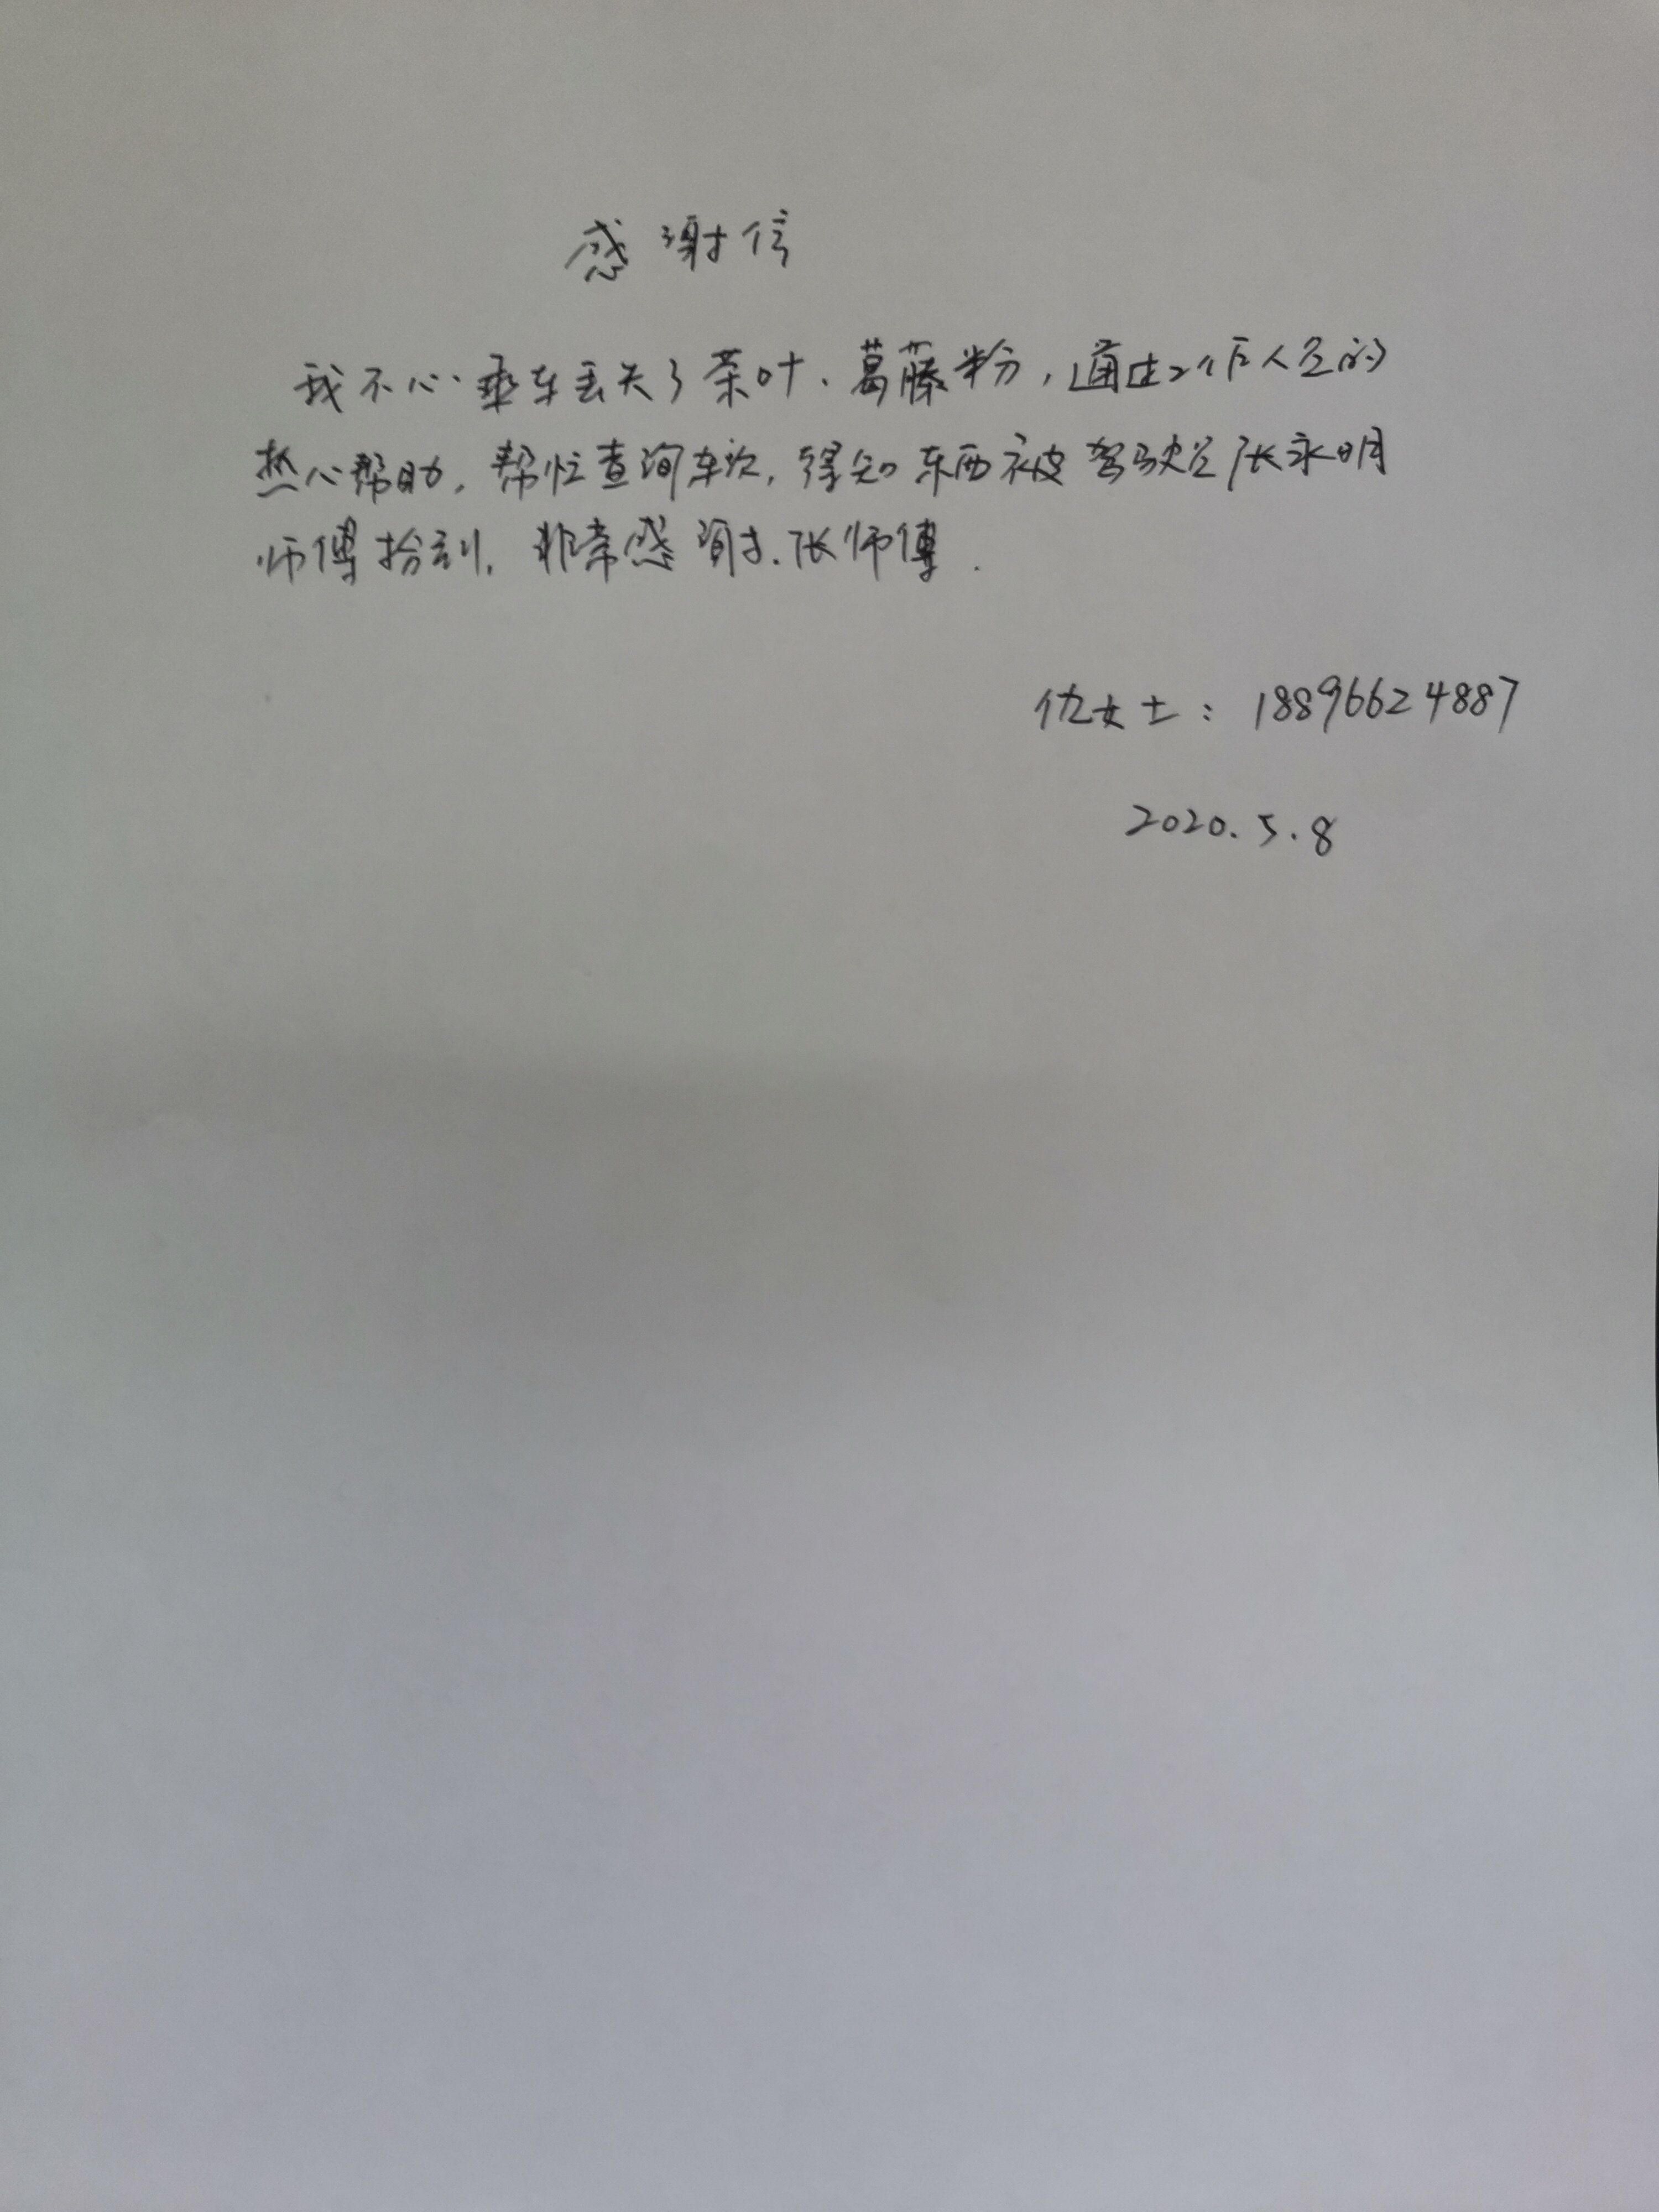 感谢信
我不心乘车丢失了茶叶、葛藤粉，通过工作人员的
热心帮助，帮忙查询车次，得知东西被驾驶员张永明
师傅捡到，非常感谢张师傅.
仇女士：18896624887
2020.5.8